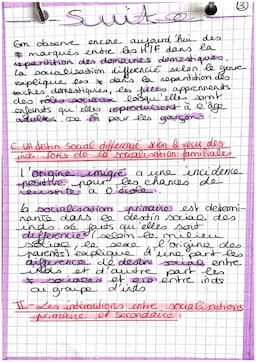 Suite
③
On observe encore aujourd'hui des
* marqués entre les H/F dans la
répartition des domaines domestiques
la socialisation différencié selon le genre
explique les * dans la répartition des
taches domestiques, les filles apprennent
des rôles sociaux lorsqu'elles sont
enfants qu'elles reproduisent à l'âge
adulte. De m pour les garçons
C. Un destin social différencié selon le vécu des
inds lors de la socialisation familiale
L'origine immigré a une incidence
positive pour les chances de
réussite à l'école.
la socialisation primaire est détermi-
nante dans le destin social des
inds le faits qu'elles soit
différenciée (selon le milieu
social, le sexe, l'origine des
parents) explique d'une part les
différence de destin social entre
inds et d'autre part les
* sociales et éco entre inds
ou groupe d'inds
II - Les interactions entre socialisations
primaire et secondaire